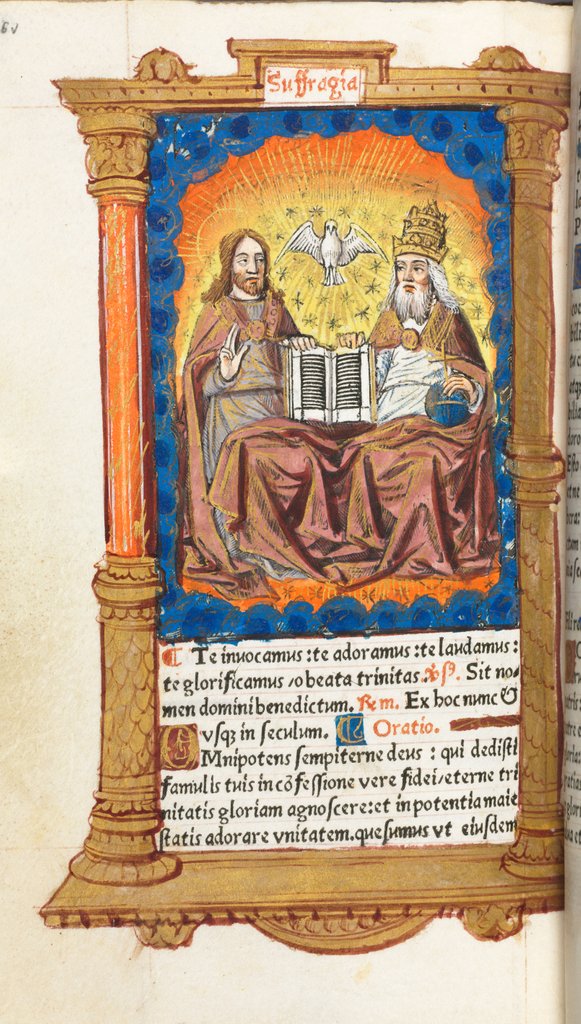 Suffragia
Te inuocamus :te adoramus :te laudamus :
te glorificamus /o beata trinitas. Sit no-
men domini benedictum. Ex hoc nunc &
vsqꝫ in seculum. Oratio.
OMnipotens sempiterne deus : qui dedisti
famulis tuis in cõfessione vere fidei/eterne tri
nitatis gloriam agnoscere:et in potentia maie
statis adorare vnitatem.quesumus vt eiusdem